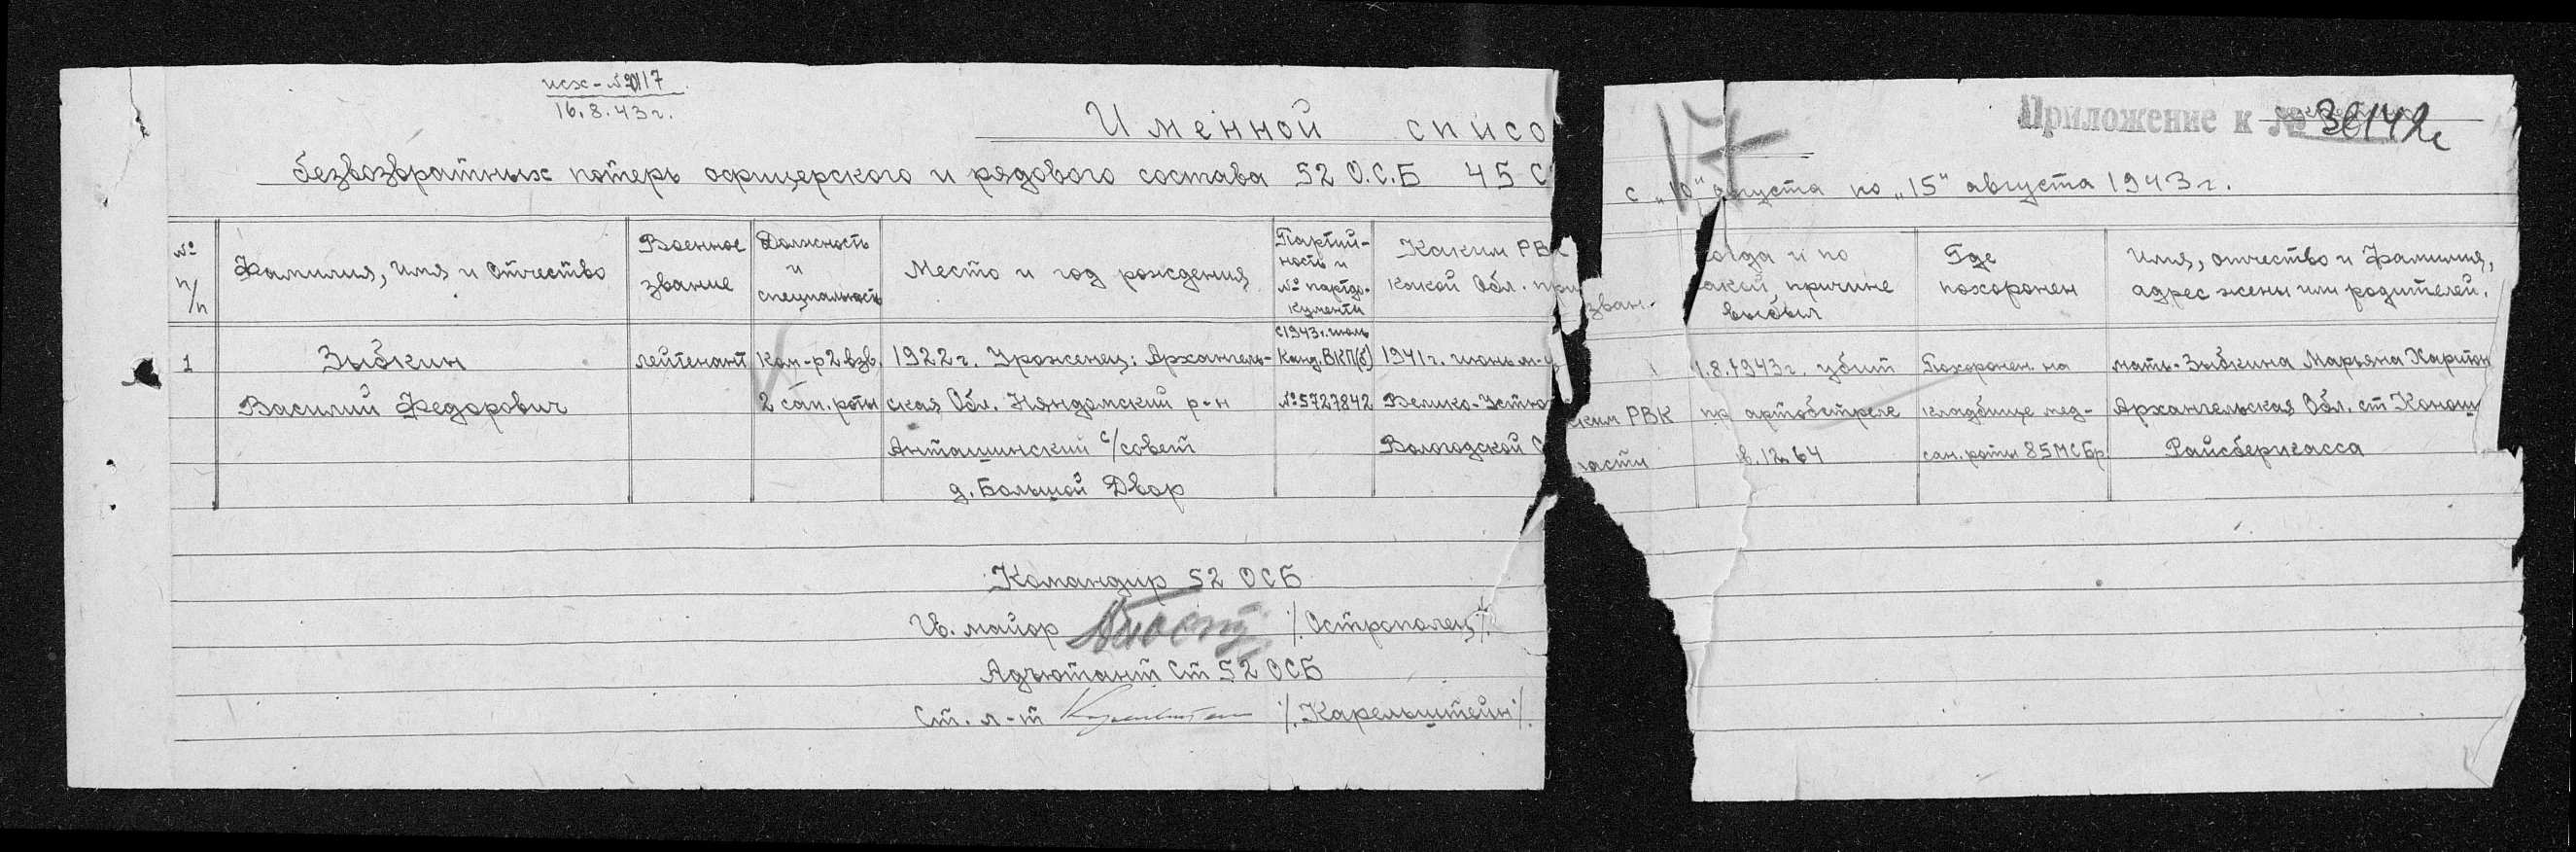 исх-№2117
16.8.43г.
Приложение к № 36142с
17
Именной списо
безвозвратных потерь офицерского и рядового состава 52 О.С.Б 45 С
с „10" августа по „15" августа 1943г.
№ п/п
Фамилия, Имя и Отчество
Военное звание
Должность и специальность
Место и год рождения
Партий-
ность и
№ партдо-
кумента
Каким РВК
какой Обл. призван.
когда и по
какой причине
выбыл
Где
похоронен
Имя, отчество и Фамилия,
адрес жены или родителей.
1
Зыбкин
Василий Федорович
лейтенант
Ком-р 2 взв.
2 сап. роты
1922г. Уроженец: Архангель-
ская Обл. Няндомский р-н
Анташинский с/совет
д. Большой Двор
с 1943г. июль
Канд. ВКП(б)
№5727842
1941г. июнь м-ц
Велико-Устю ским РВК
Вологодской О ласти
1.8.1943г. убит
пр артобстреле
в. 12 64
Похоронен на
кладбище мед-
сан. роты 85МСБр
мать-Зыбкина Марьяна Харитон
Архангельская Обл. ст Конош
Райсберкасса
Командир 52 ОСБ
Гв. майор /Острополец/
Адъютант Ст 52 ОСБ
Ст. л-т /Карельштейн/.